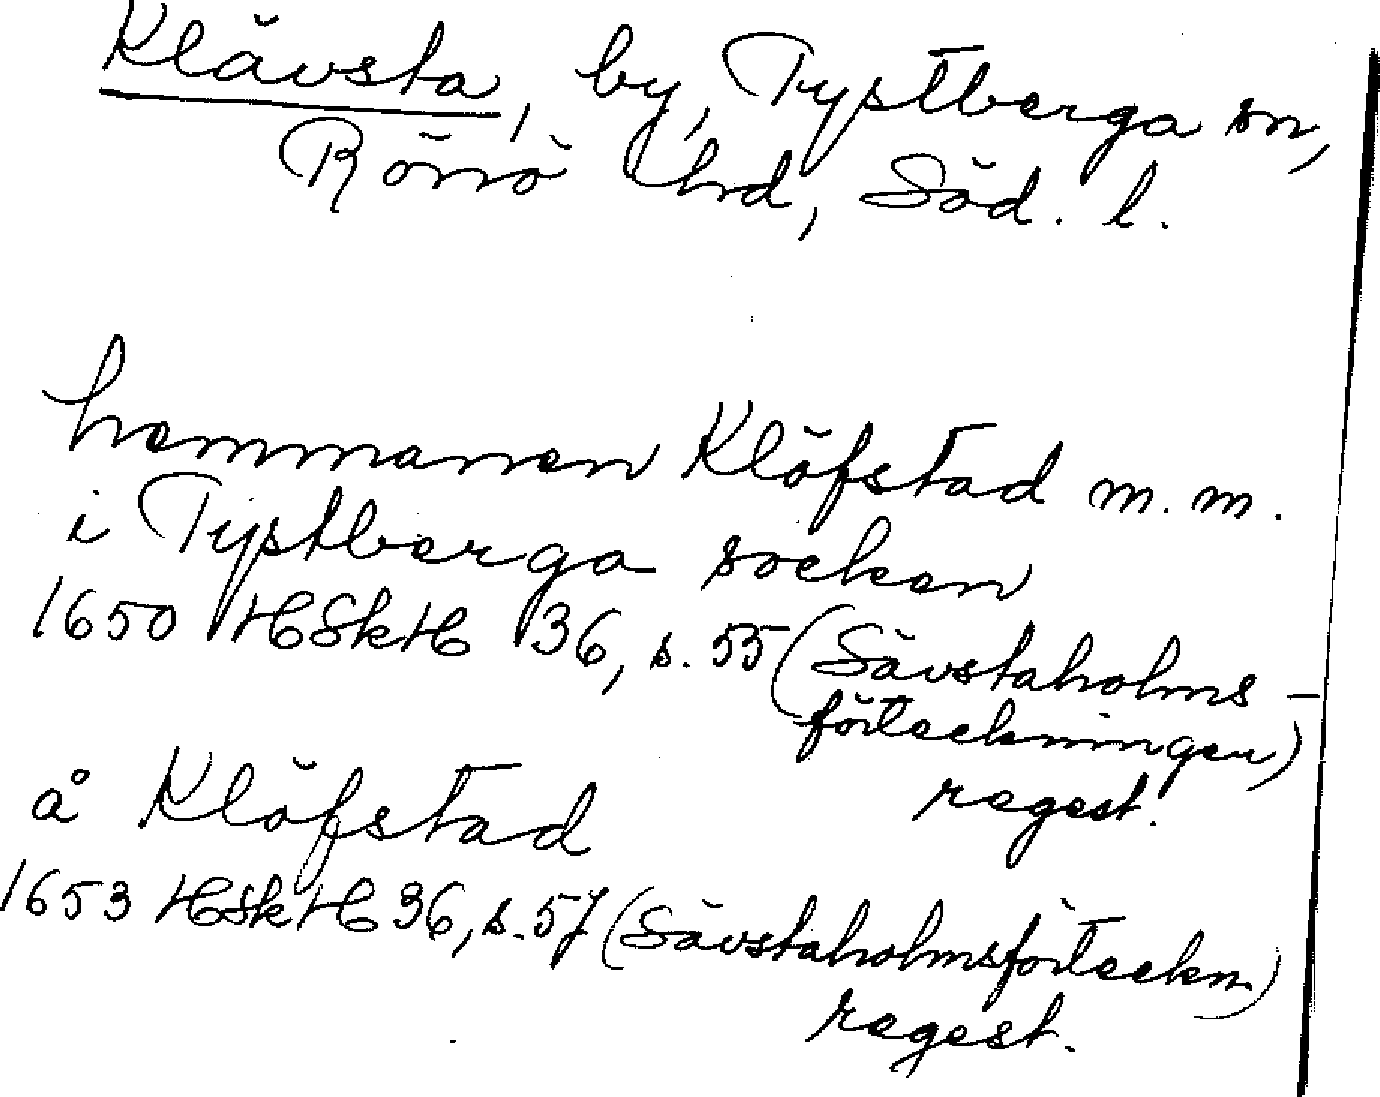 Klävsta, by, Tystberga sn,
Rönö hd, Söd. l.
hemmanen Klöfstad m. m.
i Tystberga socken
1650 HSkH 36, s. 55 (Sävstaholms-
förteckningen)
regest.
å Klöfstad
1653 HSkH 36, s. 57 (Sävstaholmsförteckn.)
regest.